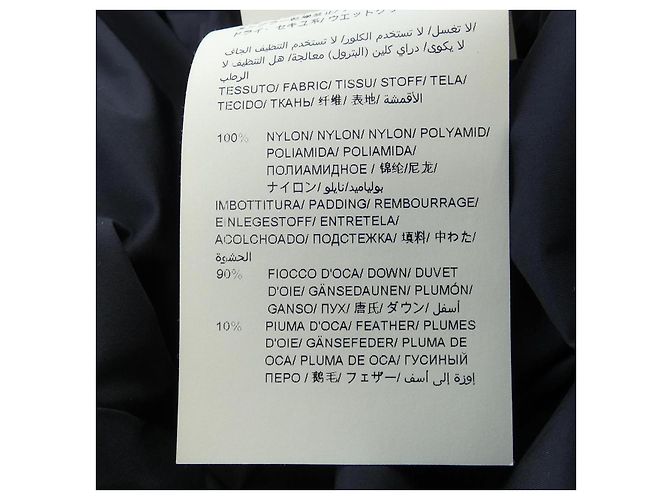 ドライ、セキユ系/ ウエットクリ
لا تغسل/ لا تستخدم الكلور/ لا تستخدم التنظيف الجاف/
لا يكوى/ دراي كلين (البترول) معالجة/ هل التنظيف لا
الرطب
TESSUTO/ FABRIC/ TISSU/ STOFF/ TELA/
TECIDO/ ТКАНЬ/ 纤维/ 表地/ الأقمشة
100% NYLON/ NYLON/ NYLON/ POLYAMID/
POLIAMIDA/ POLIAMIDA/
ПОЛИАМИДНОЕ / 锦纶/尼龙/
ナイロン/ بولياميد/نايلو
IMBOTTITURA/ PADDING/ REMBOURRAGE/
EINLEGESTOFF/ ENTRETELA/
ACOLCHOADO/ ПОДСТЕЖКА/ 填料/ 中わた/
الحشوة
90% FIOCCO D'OCA/ DOWN/ DUVET
D'OIE/ GÄNSEDAUNEN/ PLUMÓN/
GANSO/ ПУХ/ 唐氏/ ダウン/ أسفل
10% PIUMA D'OCA/ FEATHER/ PLUMES
D'OIE/ GÄNSEFEDER/ PLUMA DE
OCA/ PLUMA DE OCA/ ГУСИНЫЙ
ПЕРО / 鹅毛/ フェザー/ إوزة إلى أسف